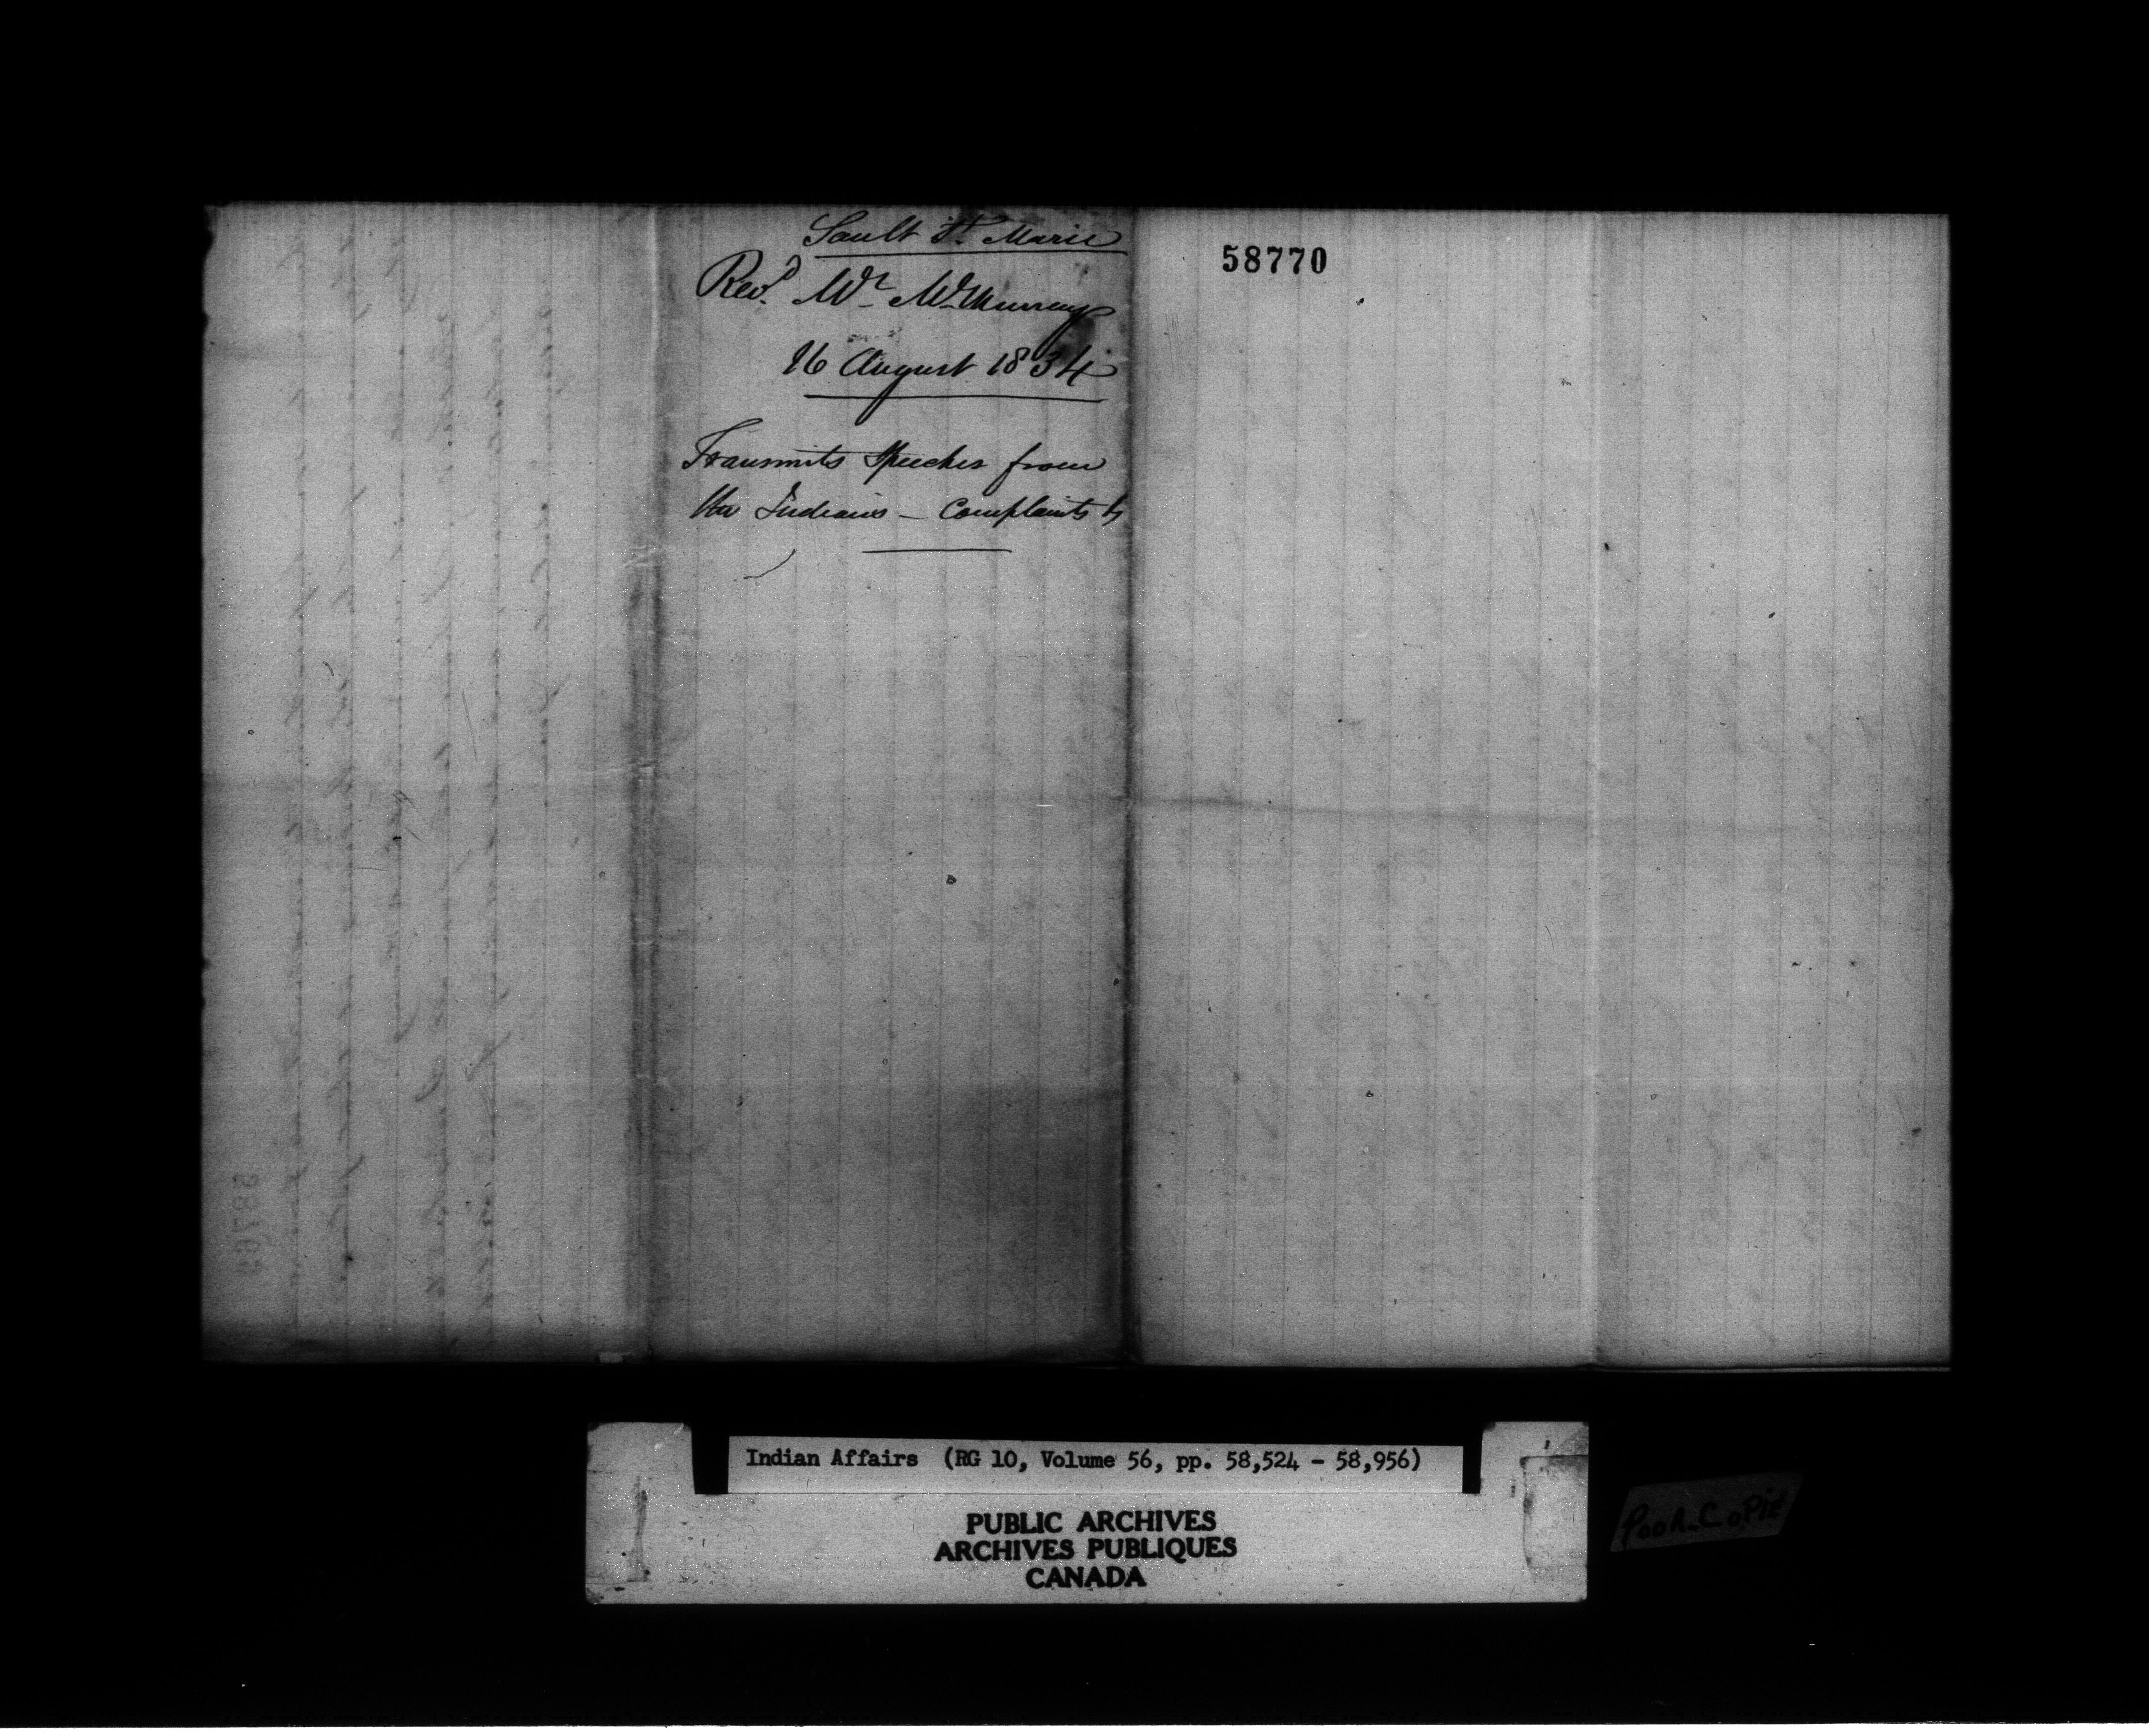 Sault St. Marie
Revd. Mr. McMurray
16 August 1834
Transmits Speeches from
the Indians — Complaints &
58770
58769
Indian Affairs (RG 10, Volume 56, pp. 58,524 - 58,956)
PUBLIC ARCHIVES
ARCHIVES PUBLIQUES
CANADA
POOR COPIE